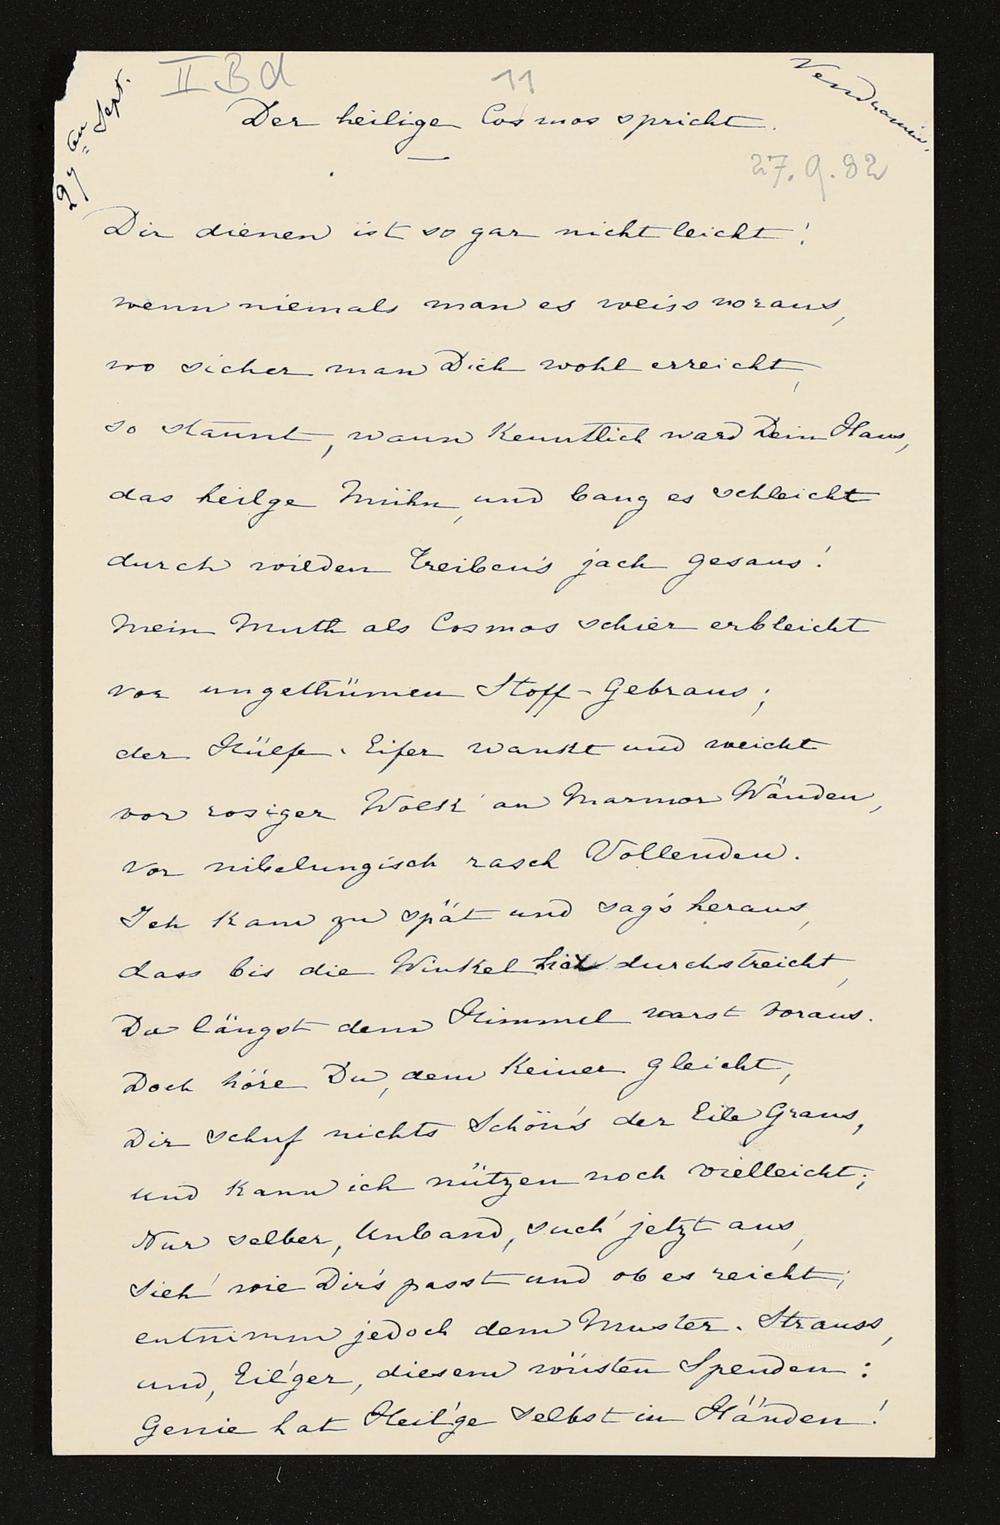 II Bd
11
27ten Sept.
Vendramin.
Der heilige Cosmos spricht.
27.9.82
Dir dienen ist so gar nicht leicht!
wenn niemals man es weiss voraus,
wo sicher man Dich wohl erreicht,
so staunt, wann kenntlich ward Dein Haus,
das heilge Mühn, und bang es schleicht
durch wilden Treiben's jach Gesaus!
Mein Muth als Cosmos schier erbleicht
vor ungethümen Stoff-Gebraus;
der Hülfe-Eifer wankt und weicht
vor rosiger Wolk' an Marmor Wänden,
vor nibelungisch rasch Vollenden.
Ich kam zu spät und sag's heraus,
dass bis die Winkel ich durchstreicht,
Du längst dem Himmel warst voraus.
Doch höre Du, dem Keiner gleicht,
Dir schuf nichts Schön's der Eile Graus,
und kann ich nützen noch vielleicht;
Nur selber, Unband, such' jetzt aus,
sieh' wie Dir's passt und ob es reicht;
entnimm jedoch dem Muster-Strauss,
und, Eil'ger, diesem wüsten Spenden:
Genie hat Heil'ge selbst in Händen!